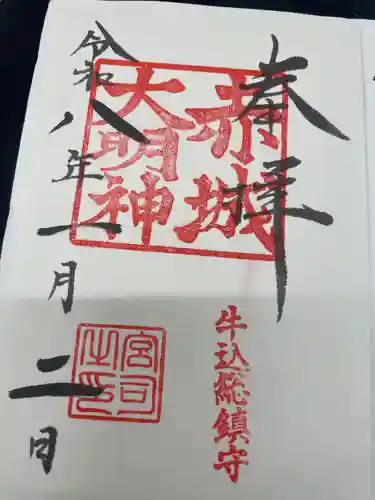 奉拝
赤城
大明神
牛込総鎮守
令和八年一月二日
宮司
之印